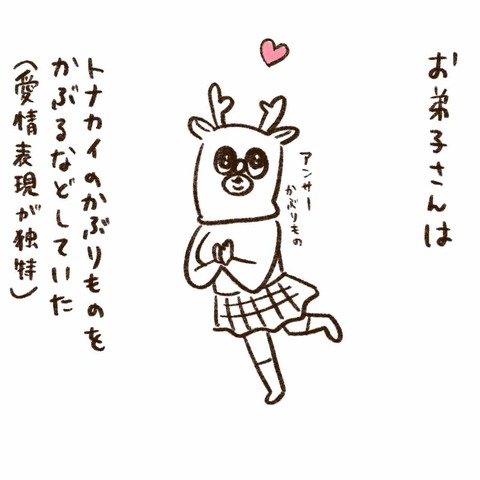 お弟子さんは
アンサー
かぶりもの
トナカイのかぶりものを
かぶるなどしていた
（愛情表現が独特）